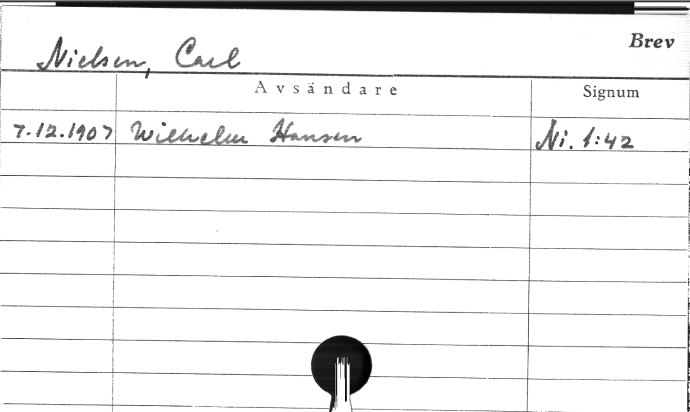 Brev
Nielsen, Carl
Avsändare Signum
7.12.1907 Wilhelm Hansen Ni. 1:42